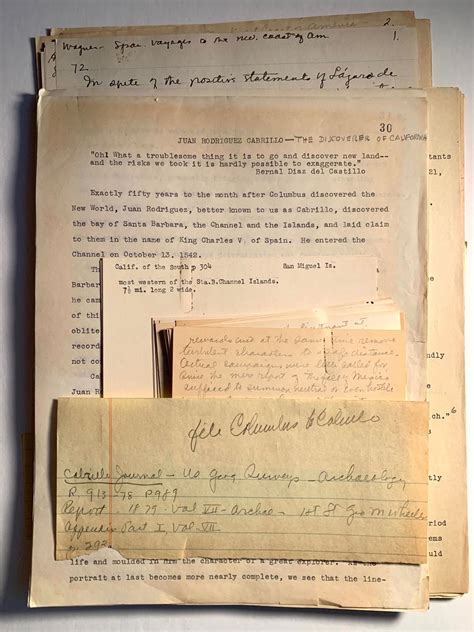 2.
Wagner Span. voyages to the nw. coast of Am. 1.
72
In spite of the positive statements of Lázaro de
30
JUAN RODRIGUEZ CABRILLO—THE DISCOVERER OF CALIFORNIA
"Oh! What a troublesome thing it is to go and discover new land--
and the risks we took it is hardly possible to exaggerate."
Bernal Diaz del Castillo
Exactly fifty years to the month after Columbus discovered the
New World, Juan Rodriguez, better known to us as Cabrillo, discovered
the bay of Santa Barbara, the Channel and the Islands, and laid claim
to them in the name of King Charles V of Spain. He entered the
Channel on October 13, 1542.
Th
Barbar
he cam
of thi
oblite
record
not co
Cabril
JUAN R
tants
21,
Calif. of the South p 304 San Miguel Is.
most western of the Sta.B.Channel Islands.
7½ mi. long 2 wide.
rewards and at the same time remove
turbulent characters to a safe distance.
Actual campaigns were little called for
since the mere report of
supposed to summon neutral or
ch."6
file Columbus to Cabrillo
Cabrillo Journal — US Geog Surveys — Archaeology
P. 913-78 P989
Report 1879 - Vol VII - Archae - 1st Lt Geo M Wheeler
Appendix Part I, Vol-VII
life and moulded in him the character of a great explorer. As the
portrait at last becomes more nearly complete, we see that the line-